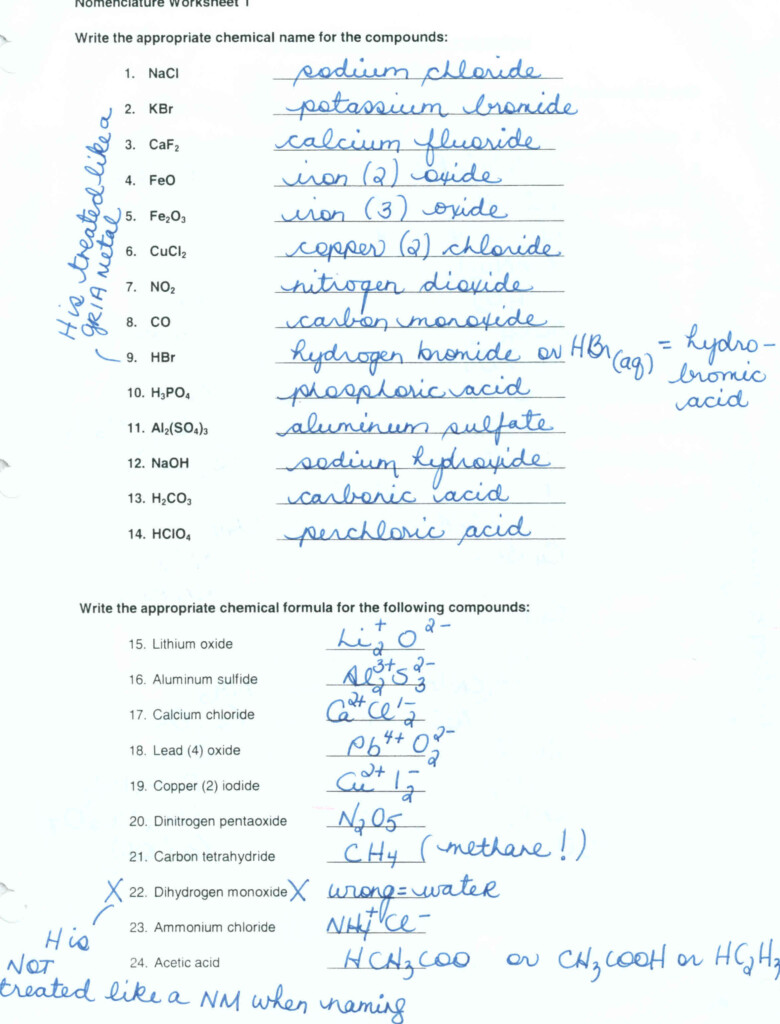 Nomenclature Worksheet 1
Write the appropriate chemical name for the compounds:
1. NaCl sodium chloride
2. KBr potassium bromide
3. CaF₂ calcium fluoride
4. FeO iron (2) oxide
5. Fe₂O₃ iron (3) oxide
6. CuCl₂ copper (2) chloride
7. NO₂ nitrogen dioxide
8. CO carbon monoxide
9. HBr hydrogen bromide or HBr(aq) = hydro-
bromic
acid
H is treated like a
GRIA metal
10. H₃PO₄ phosphoric acid
11. Al₂(SO₄)₃ aluminum sulfate
12. NaOH sodium hydroxide
13. H₂CO₃ carbonic acid
14. HClO₄ perchloric acid
Write the appropriate chemical formula for the following compounds:
15. Lithium oxide Li₂⁺ O²⁻
16. Aluminum sulfide Al₂³⁺ S₃²⁻
17. Calcium chloride Ca²⁺ Cl₂¹⁻
18. Lead (4) oxide Pb⁴⁺ O₂²⁻
19. Copper (2) iodide Cu²⁺ I₂⁻
20. Dinitrogen pentaoxide N₂O₅
21. Carbon tetrahydride CH₄ (methane!)
X 22. Dihydrogen monoxide X wrong = water
23. Ammonium chloride NH₄⁺Cl⁻
24. Acetic acid HCH₃COO or CH₃COOH or HC₂H₃
H is
NOT
treated like a NM when naming